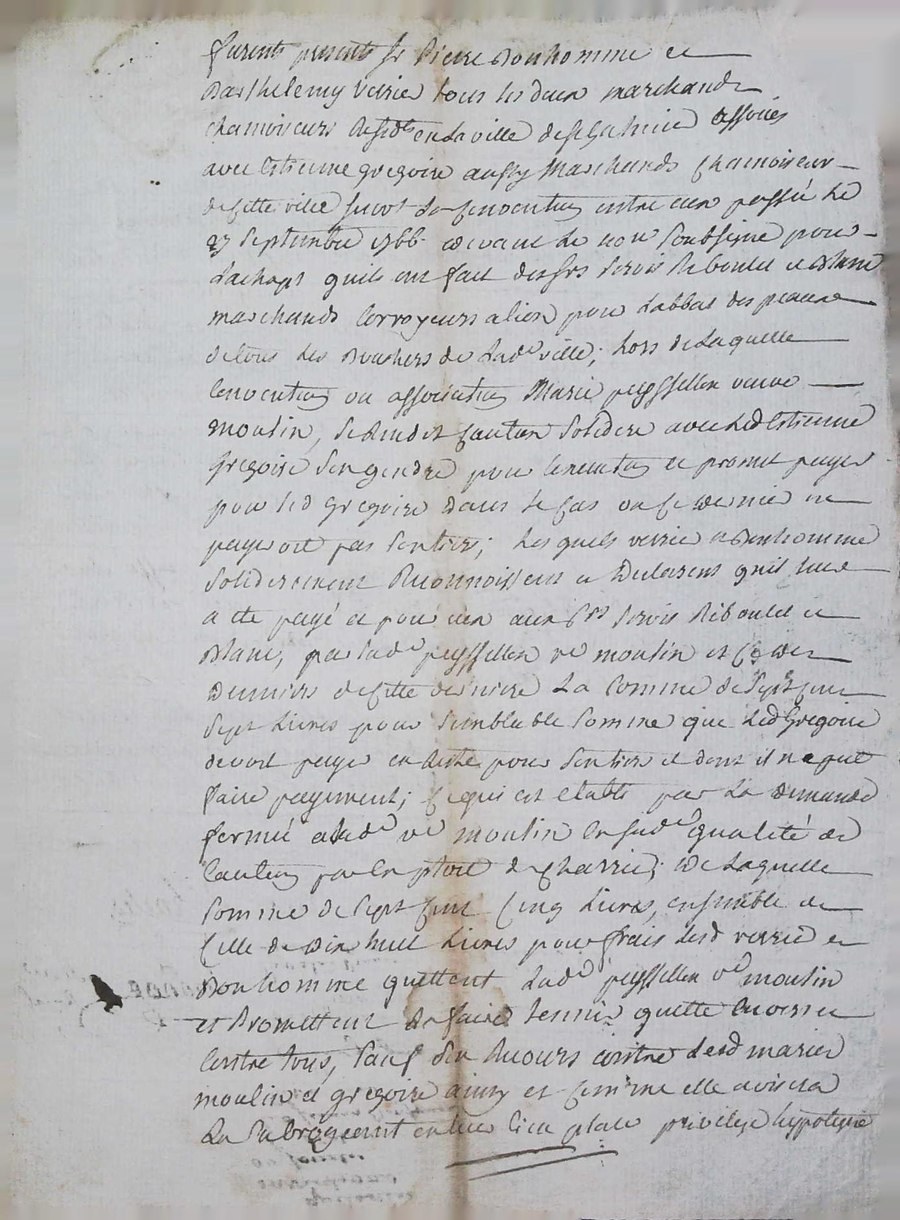 furent presents Sr Pierre Bonhomme et
Barthelemy Verrier tous les deux marchands
chamoiseurs residts en la ville de associés
avec Estienne gregoire aussy Marchands Chamoiseur
de cette ville suivt la Convention entre eux passée le
27 Septembre 1766 devant le nore soubsigné pour
Lachapt quils ont fait des srs Servis Riboulet et Blanc
marchands Corroyeurs pour Labbat des peaux
de tous les Bouchers de Lade ville; Lors de Laquelle
Convention ou association Marie peyssellon veuve
moulin, se rendit Caution Solidere avec led Estienne
Gregoire son gendre pour et promit payer
pour led Gregoire dans le Cas ou Ce dernier ne
payeroit pas son tiers; Lesquels verrier et Bonhomme
Soliderement Reconnoissent et Declarent quil leur
a ete payé et pour eux aux Srs Servis Riboulet et
Blanc, par lade peyssellon ve moulin et Ce des
Deniers de cette derniere La Somme de Sept Cent
Sept Livres pour Semblable Somme que Led Gregoire
devoit payer en reste pour son tiers et dont il na put
faire payement; Ce qui est etabli par La Demande
formée a lade ve moulin en sade qualité de
Caution par Exploit de Charrier; de Laquelle
Somme de Sept Cent Cinq Livres, ensemble de
Celle de Dix huit Livres pour frais Lesd verrier et
Bonhomme quittent Lade peyssellon ve moulin
et Promettent den faire tenir quitte envers et
Contre tous, Sauf Son Recours contre Lesd mariés
moulin et gregoire ainsy et Comme elle avisera
La Subrogeant en leur lieu place privilege hypoteque